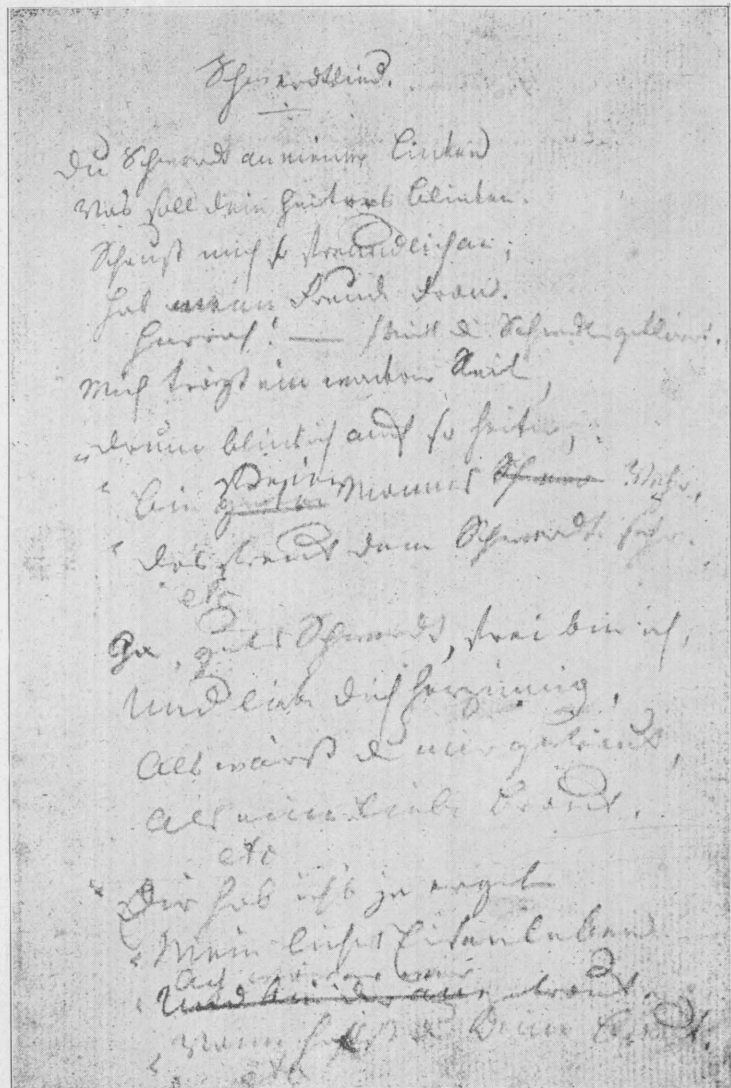 Schwerdtlied.
Du Schwerdt an meiner Linken
Was soll dein heitres Blinken.
Schaust mich so freundlich an;
Hab meine Freude dran.
Hurrah!
Mich trägt ein wackrer Reiter,
„Drum blink ich auch so heiter,
„ bin freien guten Mannes Wehr,
„ das freut dem Schwerdte sehr.
etc
Ja, gutes Schwerdt, frei bin ich,
Und liebe dich herzinnig,
Als wärst du mir getraut,
Als eine liebe Braut.
etc
„ Dir hab ich's ja ergeben
„ Mein lichtes Eisenleben
Ach wären wir
„ getraut.
„ Wann holst du Deine Braut.
etc